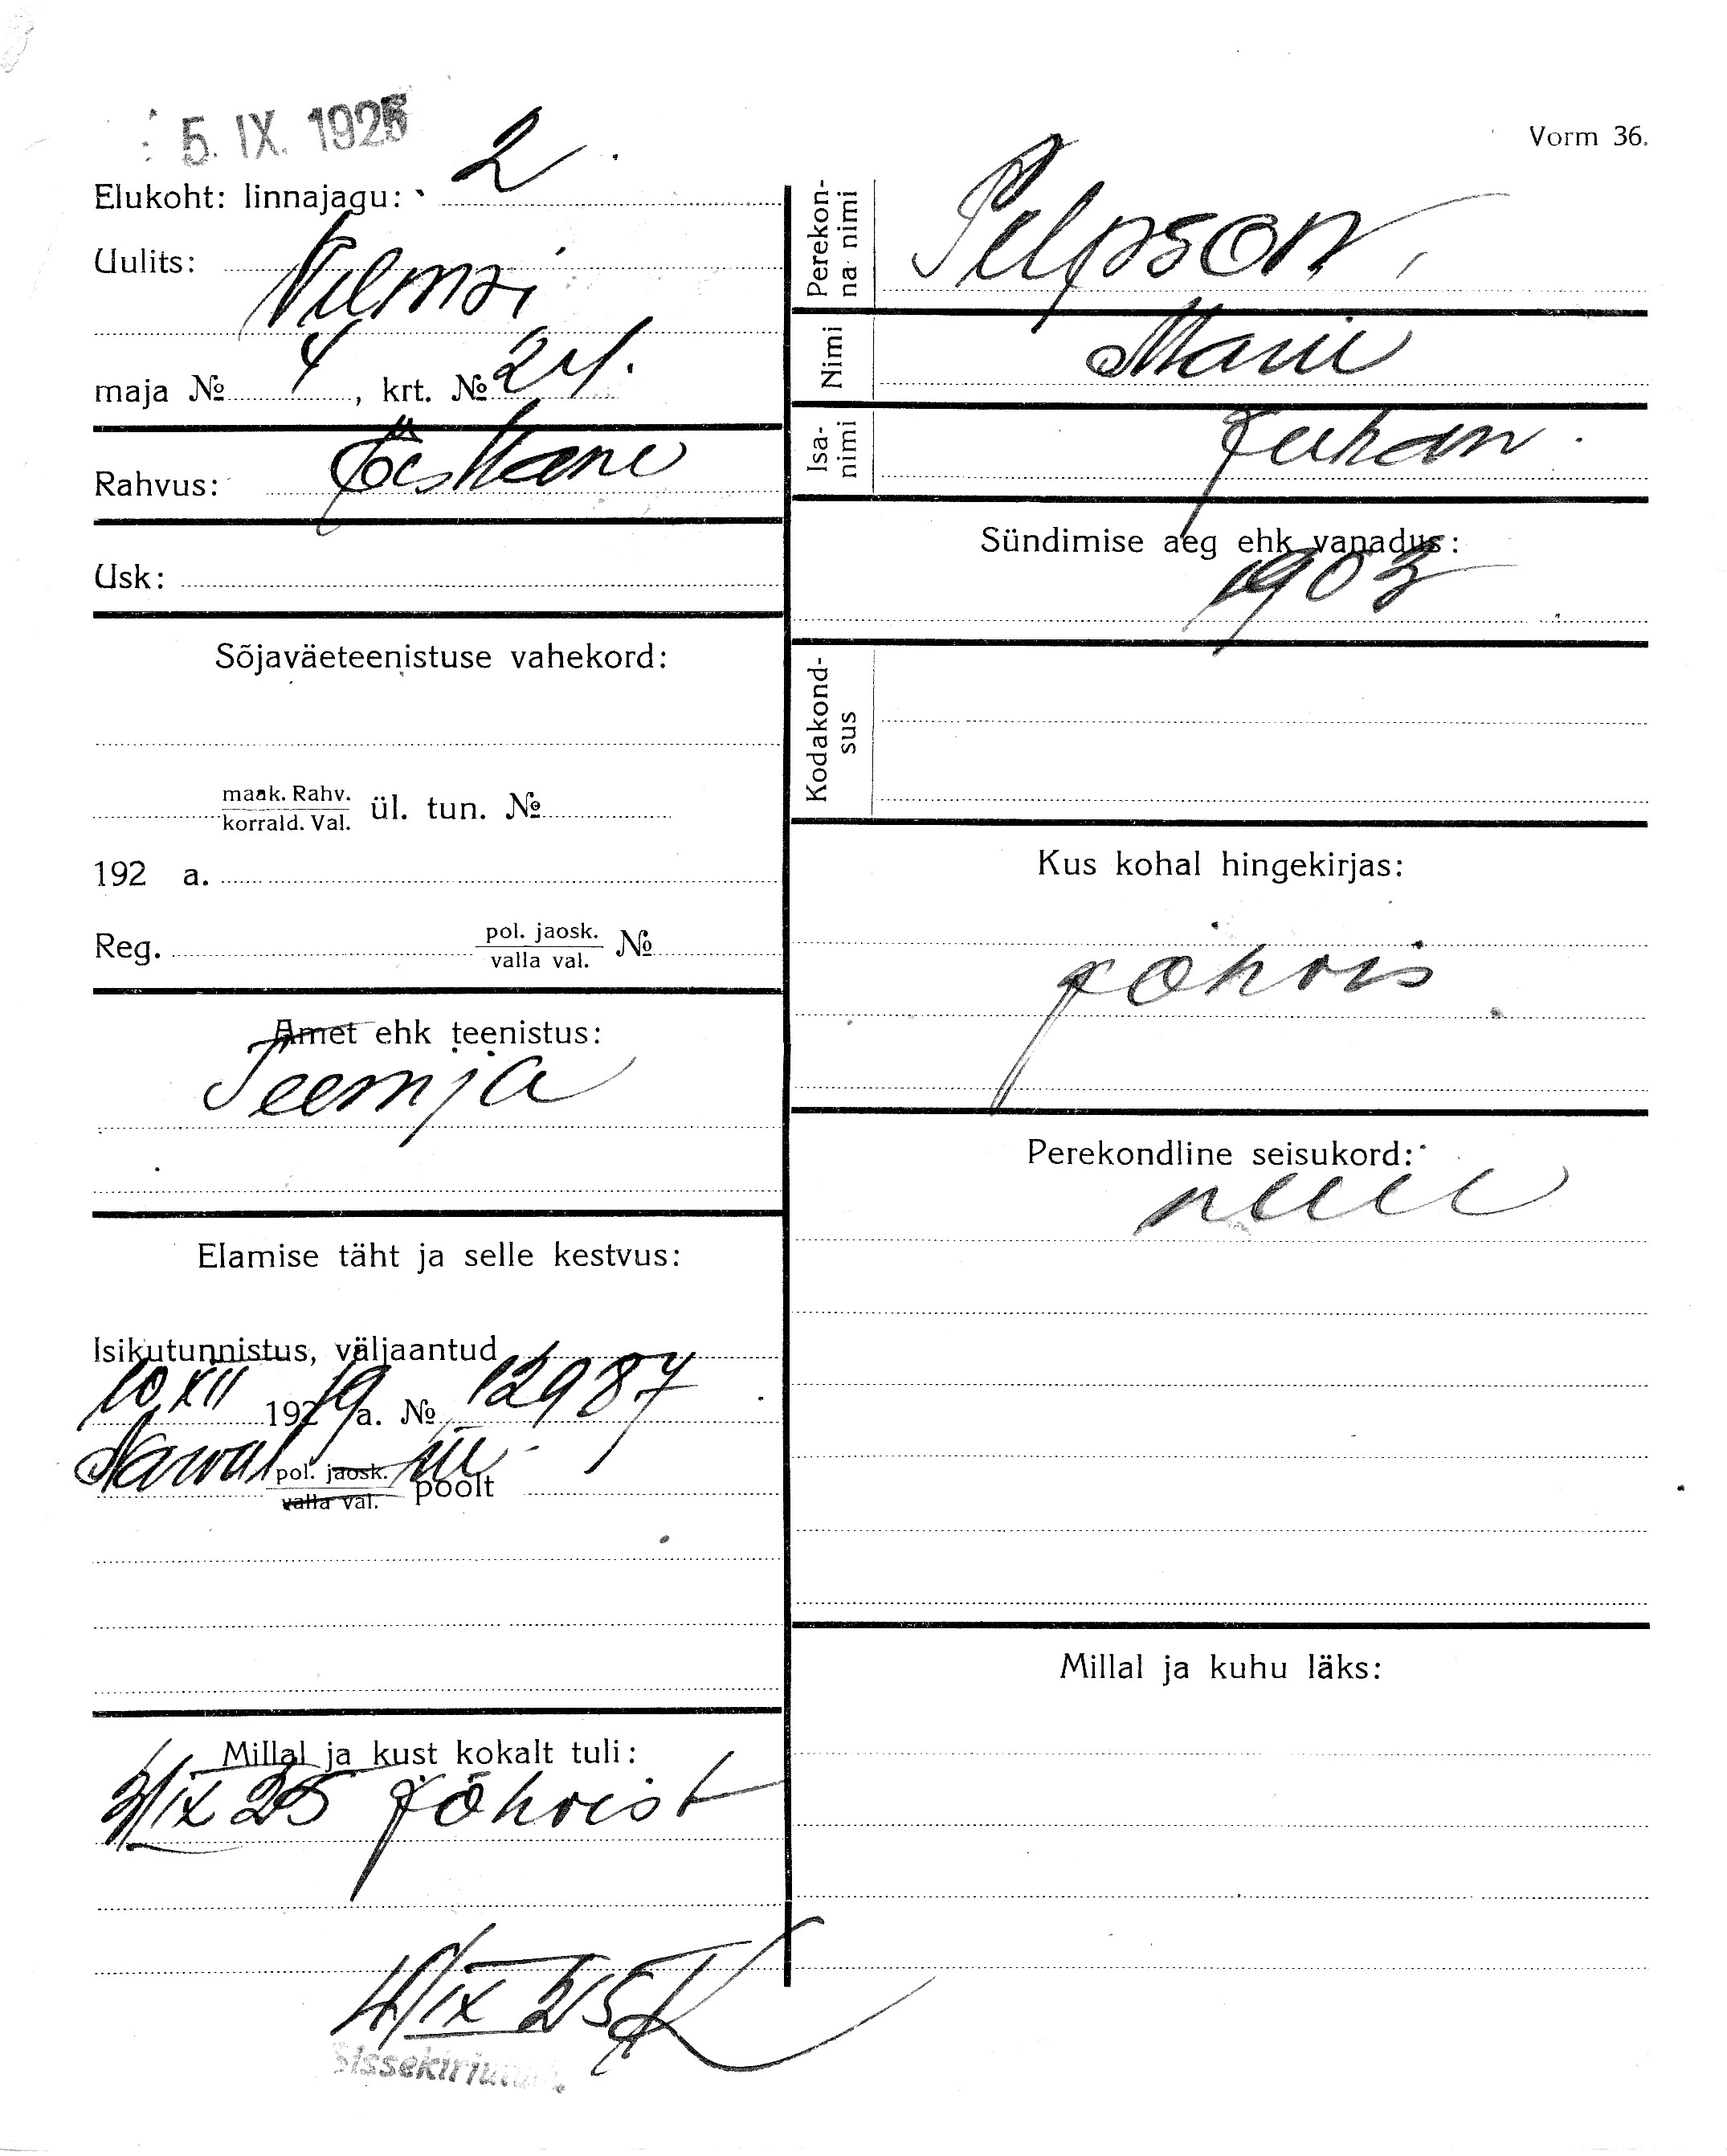 5. IX. 1925
Vorm 36.
Elukoht: linnajagu: 2
Uulits: Vilmsi
maja № 4, krt. № 24.
Rahvus: Eestlane
Usk:
Sõjaväeteenistuse vahekord:
maak. Rahv.
korrald. Val. ül. tun. №
192 a.
Reg. pol. jaosk.
valla val. №
Amet ehk teenistus:
Teenija
Elamise täht ja selle kestvus:
Isikutunnistus, väljaantud
10 XII 19 19 a. № 12987
Narva pol. jaosk. III
valla val. poolt
Millal ja kust kokalt tuli:
3/IX 25 Jõhvist
4/IX 25
Sissekirjutat.
Perekon-
na nimi
Nimi Marie
Isa-
nimi Juhan
Sündimise aeg ehk vanadus:
1903
Kodakond-
sus
Kus kohal hingekirjas:
Jõhvis
Perekondline seisukord:
neiu
Millal ja kuhu läks: